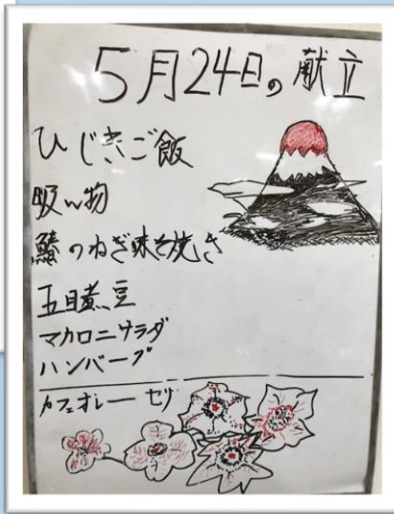 5月24日の献立
ひじきご飯
吸い物
鰆のねぎ味そ焼き
五目煮豆
マカロニサラダ
ハンバーグ
カフェオレーゼリ